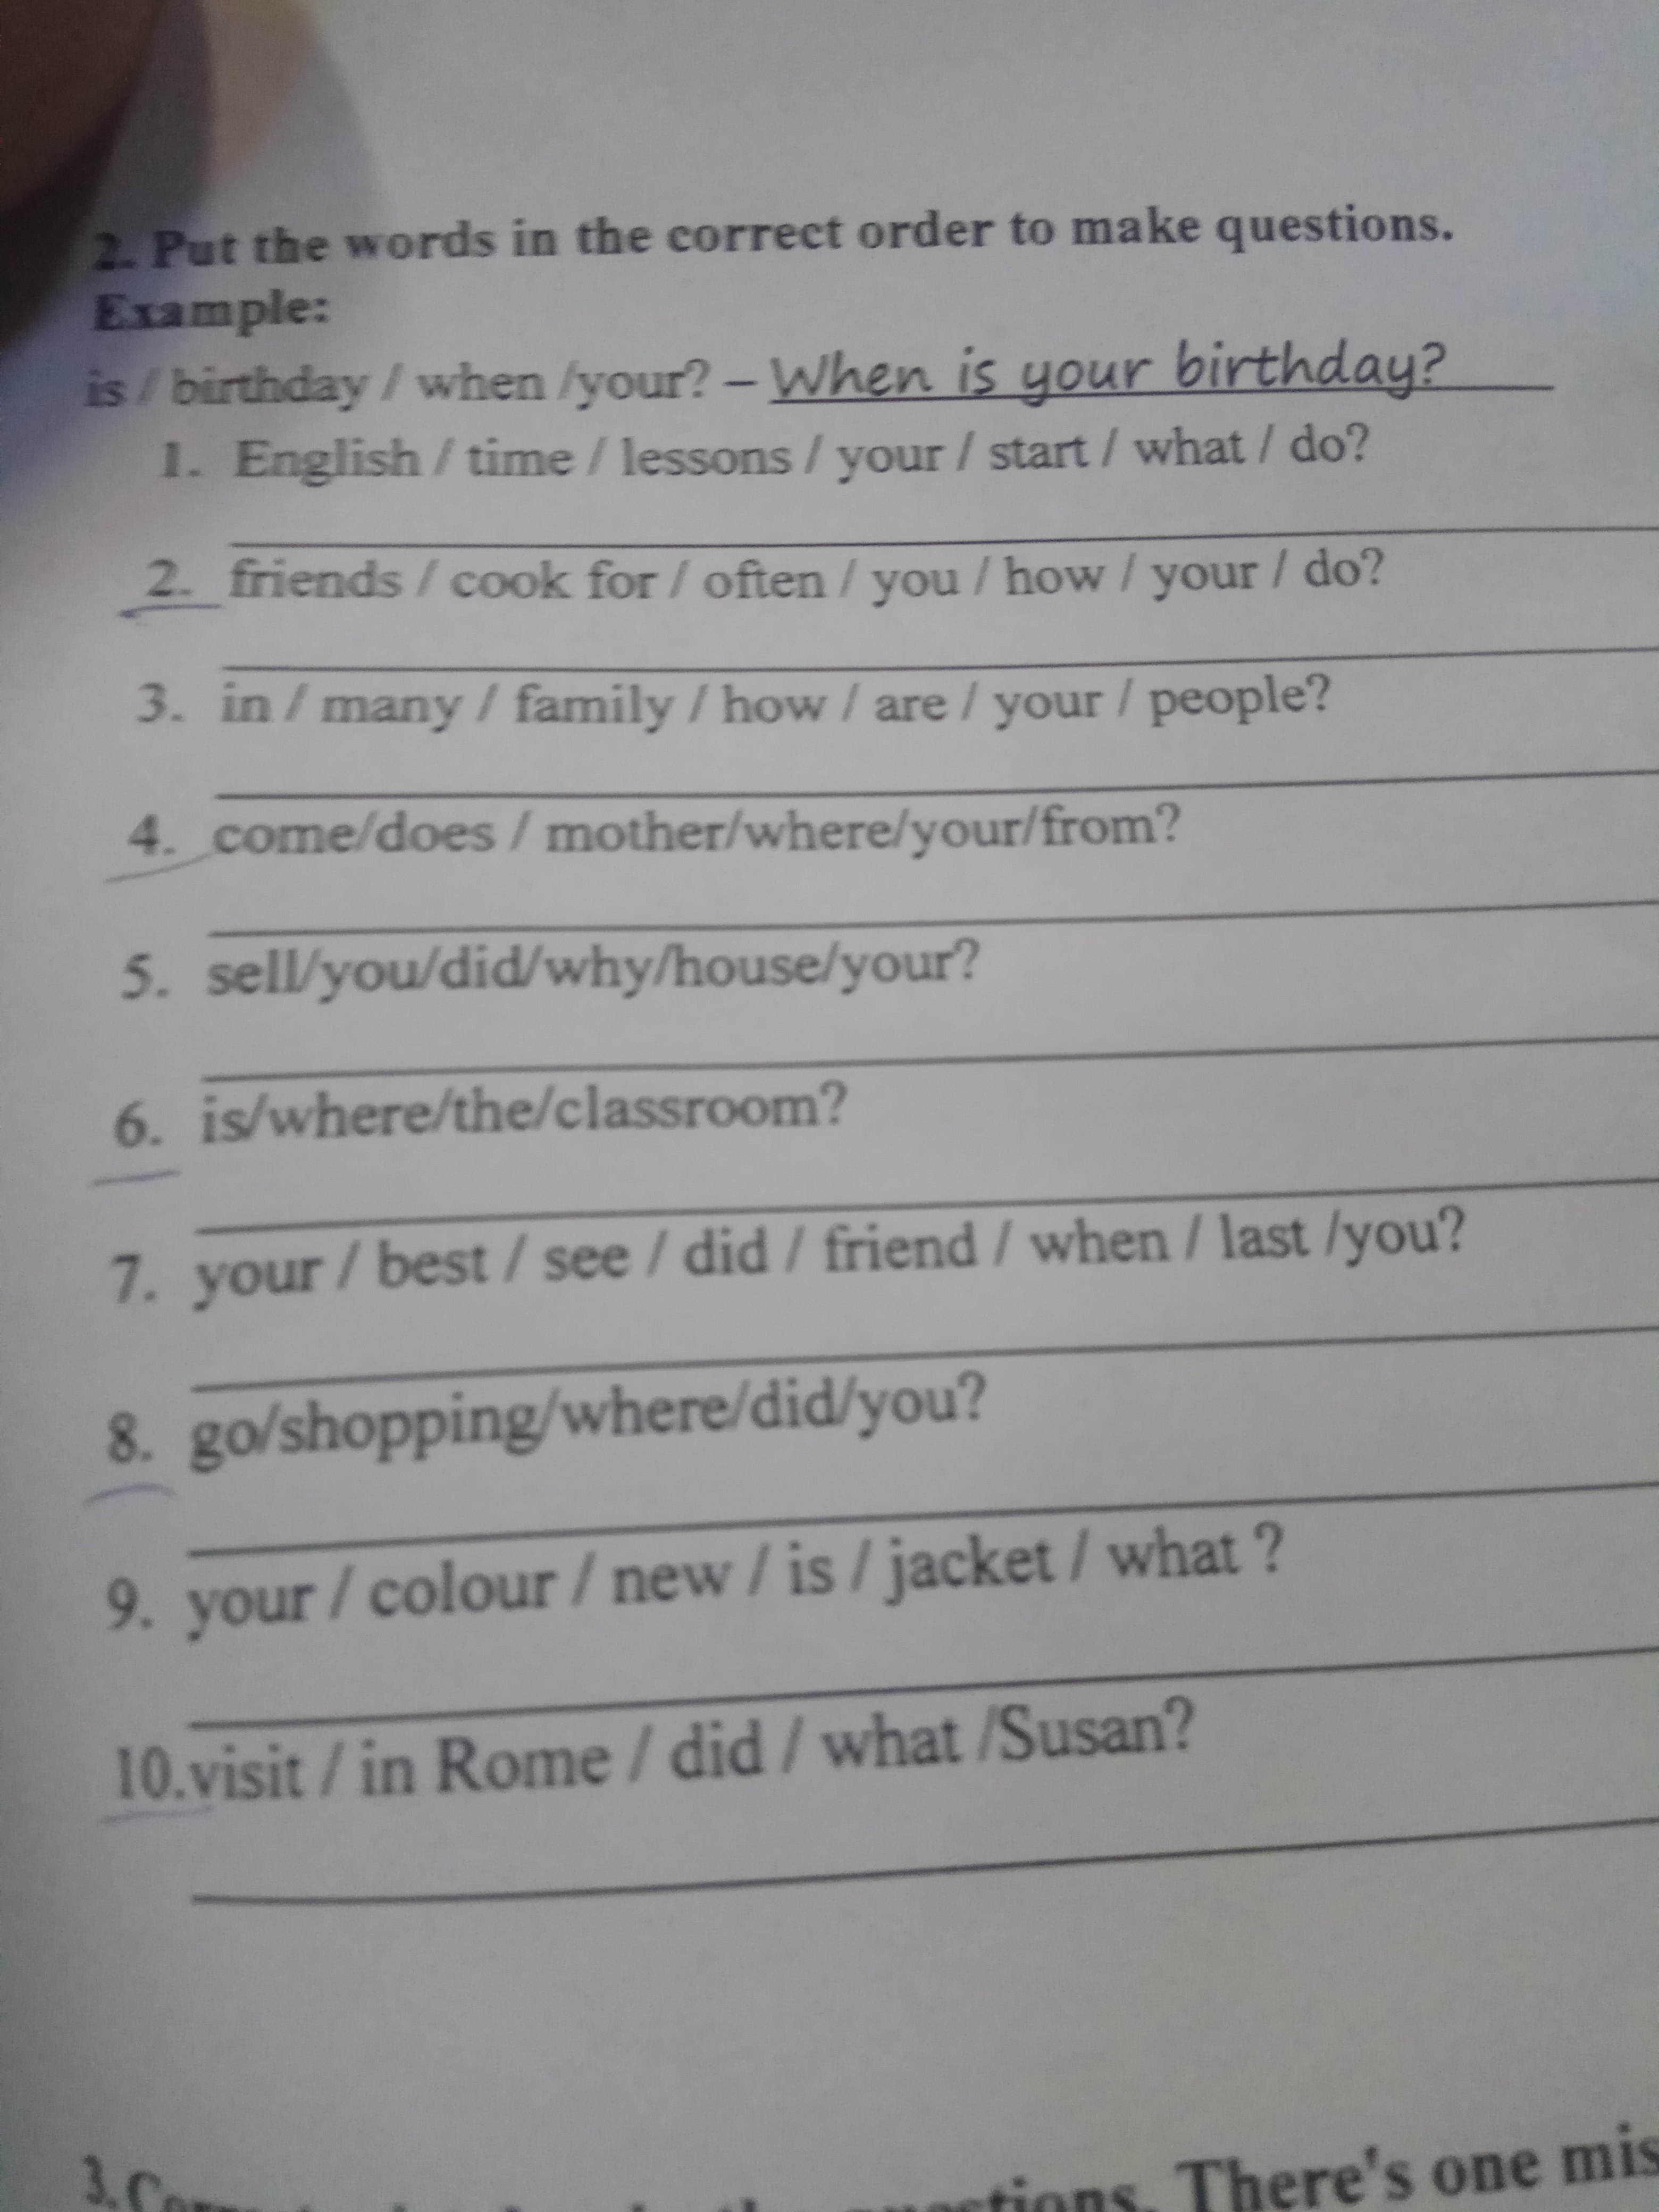 2. Put the words in the correct order to make questions.
Example:
is / birthday / when /your? – When is your birthday?
1. English / time / lessons / your / start / what / do?
2. friends / cook for / often / you / how / your / do?
3. in / many / family / how / are / your / people?
4. come/does / mother/where/your/from?
5. sell/you/did/why/house/your?
6. is/where/the/classroom?
7. your / best / see / did / friend / when / last /you?
8. go/shopping/where/did/you?
9. your / colour / new / is / jacket / what ?
10.visit / in Rome / did / what /Susan?
3. There's one